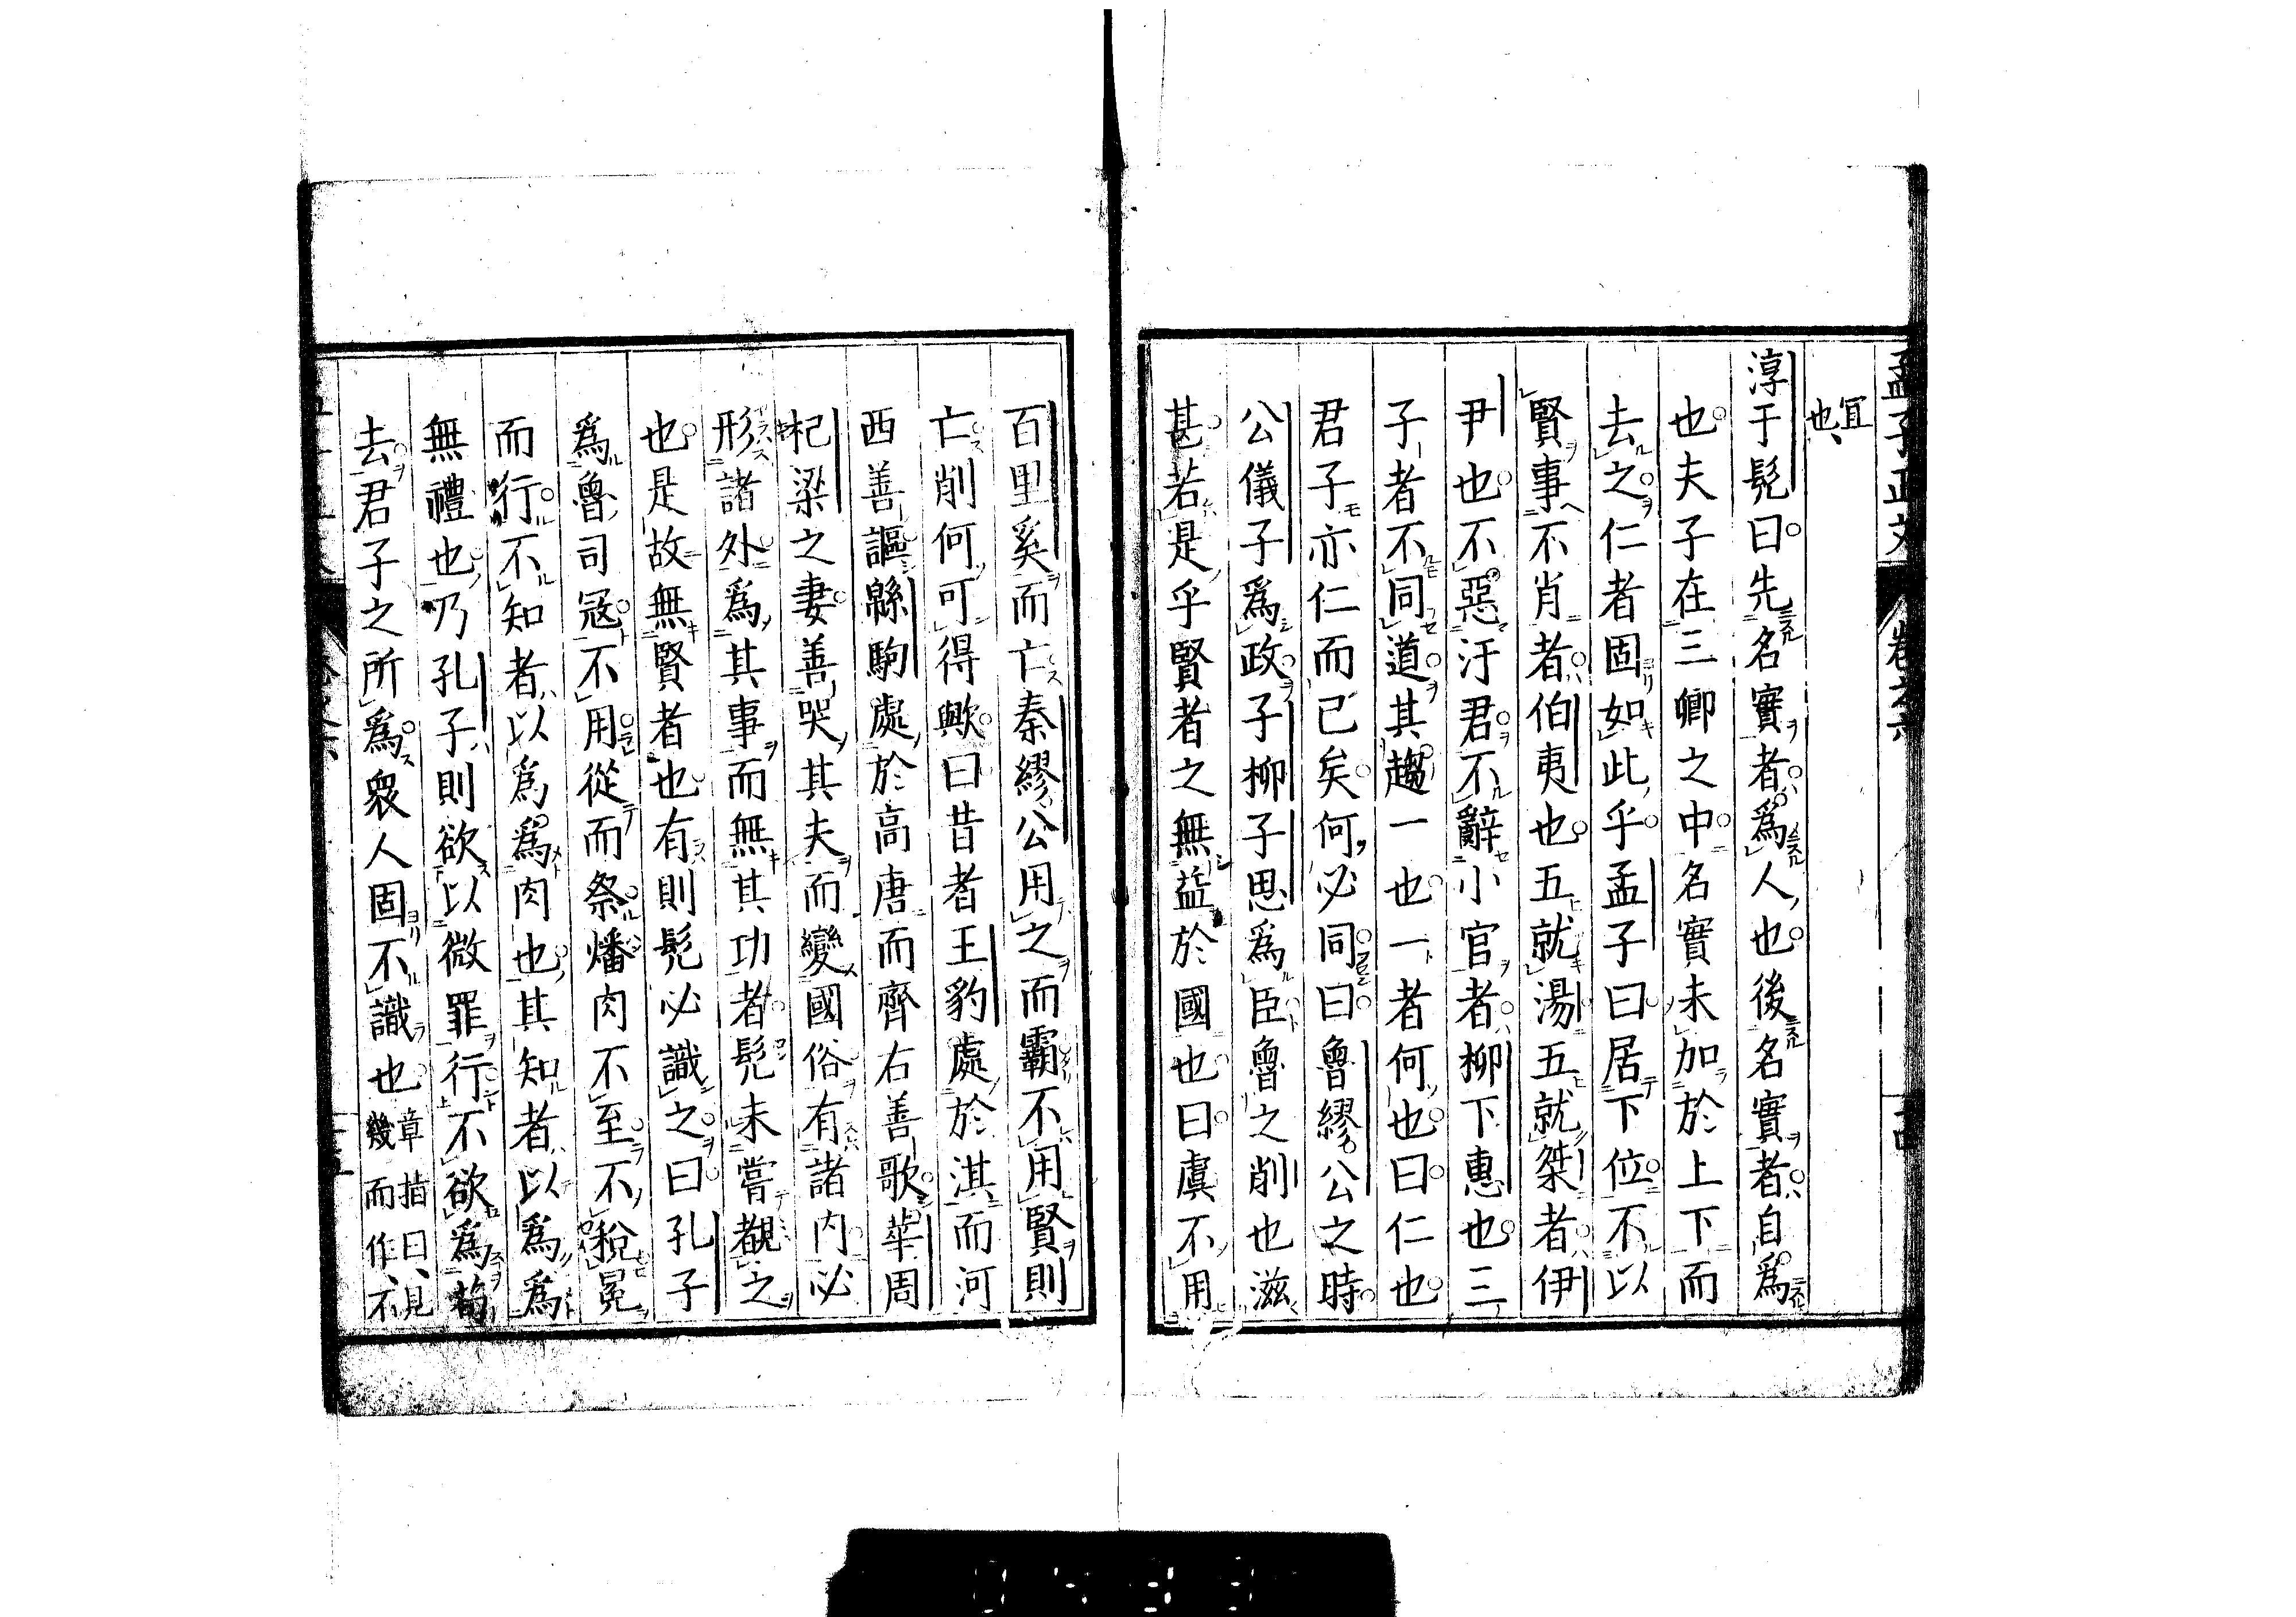 孟子正文 卷之六
宜
也
淳于髡曰先名實者爲人也後名實者自爲
也夫子在三卿之中名實未加於上下而
去之仁者固如此乎孟子曰居下位不以
賢事不肖者伯夷也五就湯五就桀者伊
尹也不惡汙君不辭小官者柳下惠也三
子者不同道其趨一也一者何也曰仁也
君子亦仁而已矣何必同曰魯繆公之時
公儀子爲政子柳子思爲臣魯之削也滋
甚若是乎賢者之無益於國也曰虞不用
百里奚而亡秦繆公用之而霸不用賢則
亡削何可得歟曰昔者王豹處於淇而河
西善謳緜駒處於高唐而齊右善歌華周
杞梁之妻善哭其夫而變國俗有諸內必
形諸外爲其事而無其功者髡未嘗覩之
也是故無賢者也有則髡必識之曰孔子
爲魯司冦不用從而祭燔肉不至不稅冕
而行不知者以爲爲肉也其知者以爲爲
無禮也乃孔子則欲以微罪行不欲爲苟
去君子之所爲衆人固不識也
章指曰見
幾而作不